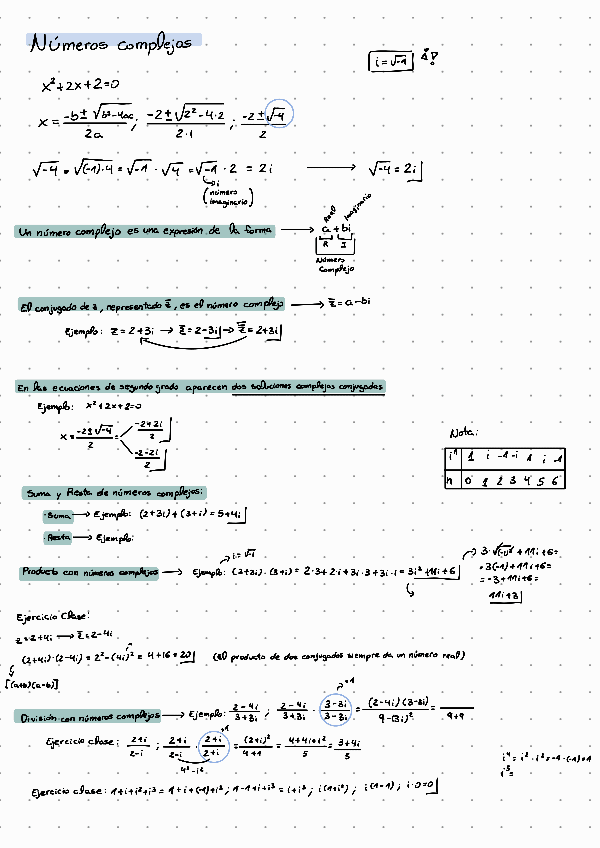 Números complejos
i = √-1
x²+2x+2=0
x = -b ± √b²-4ac / 2a ; -2 ± √2²-4·2 / 2·1 ; -2 ± √-4 / 2
√-4 = √(-1)·4 = √-1 · √4 = √-1 · 2 = 2i → √-4 = 2i
i
(número imaginario)
Real Imaginario
Un número complejo es una expresión de la forma → a + bi
R I
Número
Complejo
El conjugado de z, representado z̅, es el número complejo → z̅ = a-bi
Ejemplo: z = 2+3i → z̅ = 2-3i → z̿ = 2+3i
En las ecuaciones de segundo grado aparecen dos soluciones complejas conjugadas
Ejemplo: x²+2x+2=0
x = -2±√-4 / 2 = -2+2i / 2
-2-2i / 2
Nota:
iⁿ 1 i -1 -i 1 i -1
n 0 1 2 3 4 5 6
Suma y Resta de números complejos:
·Suma → Ejemplo: (2+3i)+(3+i) = 5+4i
·Resta → Ejemplo:
i = √-1
Producto con números complejos → Ejemplo: (2+3i)·(3+i) = 2·3+2·i+3i·3+3i·i = 3i²+11i+6
3·(√-1)²+11i+6=
=3(-1)+11i+6=
=-3+11i+6=
11i+3
Ejercicio Clase:
z=2+4i → z̅=2-4i
(2+4i)·(2-4i) = 2²-(4i)² = 4+16 = 20 (El producto de dos conjugados siempre da un número real)
[(a+b)(a-b)]
División con números complejos → Ejemplo: 2-4i / 3+3i ; 2-4i / 3+3i · 3-3i / 3-3i = (2-4i)(3-3i) / 9-(3i)² = / 9+9
Ejercicio clase: 2+i / 2-i ; 2+i / 2-i · 2+i / 2+i = (2+i)² / 4+1 = 4+4i+i² / 5 = 3+4i / 5
4²-i²
i⁴ = i²·i² = -1·(-1) = 1
i⁵=
Ejercicio clase: 1+i+i²+i³ = 1+i+(-1)+i³ ; 1-1+i+i³ = i+i³ ; i(1+i²) ; i(1-1) ; i·0=0